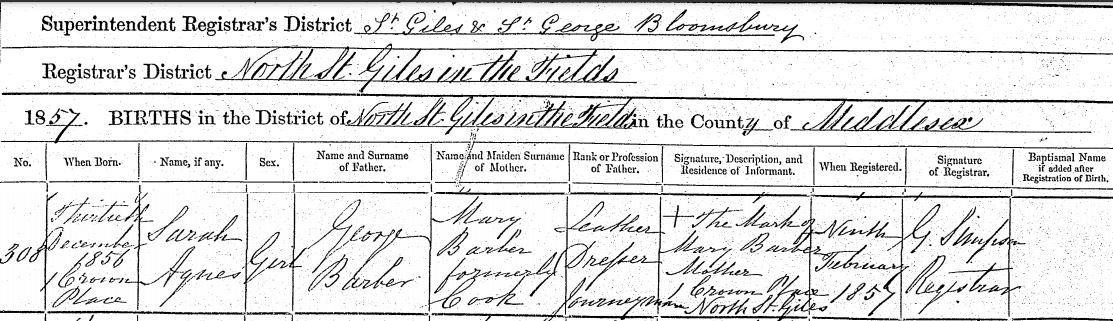 Superintendent Registrar's District St. Giles & St. George Bloomsbury
Registrar's District North St. Giles in the Fields
1857. BIRTHS in the District of North St. Giles in the Fields in the County of Middlesex
No.
When Born.
Name, if any.
Sex.
Name and Surname
of Father.
Name and Maiden Surname
of Mother.
Rank or Profession
of Father.
Signature, Description, and
Residence of Informant.
When Registered.
Signature
of Registrar.
Baptismal Name
if added after
Registration of Birth.
308
Thirtieth
December
1856
1 Crown
Place
Sarah
Agnes
Girl
George
Barber
Mary
Barber
formerly
Cook
Leather
Dresser
Journeyman
+ The Mark of
Mary Barber
Mother
1 Crown Place
North St. Giles
Ninth
February
1857
G. Simpson
Registrar